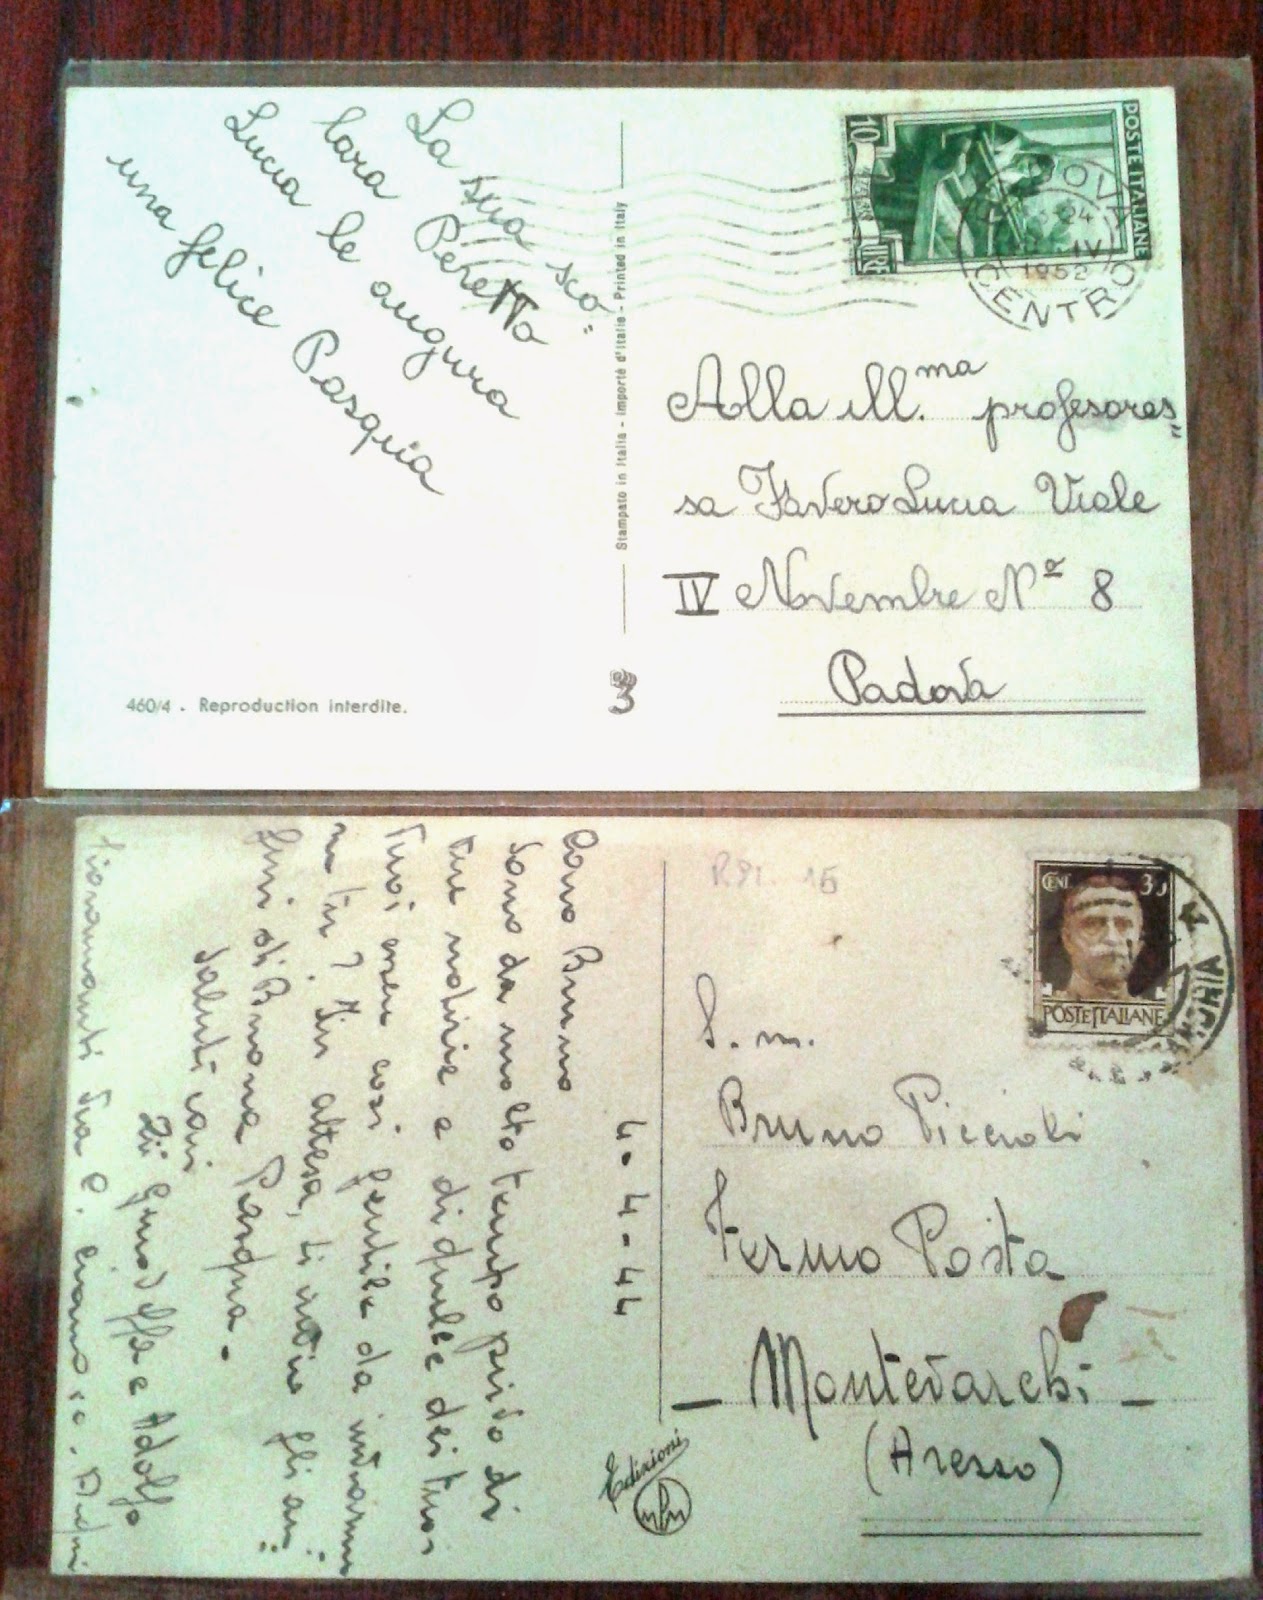 La sua sco=
lara Peretto
Lucia le augura
una felice Pasqua
10
LIRE
POSTE ITALIANE
CENTRO
IV
1952
Alla ill.ma profesores=
sa Favero Lucia Viale
IV Novembre Nº 8
Padova
Stampato in Italia - Importé d'Italie - Printed in Italy
460/4 . Reproduction interdite.
3
4-4-44
Caro Bruno
Sono da molto tempo privo di
tue notizie e di quelle dei tuoi
Vuoi essere così gentile da inviarme
ne tu? In attesa, ti invio gli au=
guri di Buona Pasqua.
Saluti cari
e Adolfo
CENT 30
POSTE ITALIANE
S. m.
Bruno Piccioli
Fermo Posta
- Montevarchi -
(Arezzo)
Edizioni